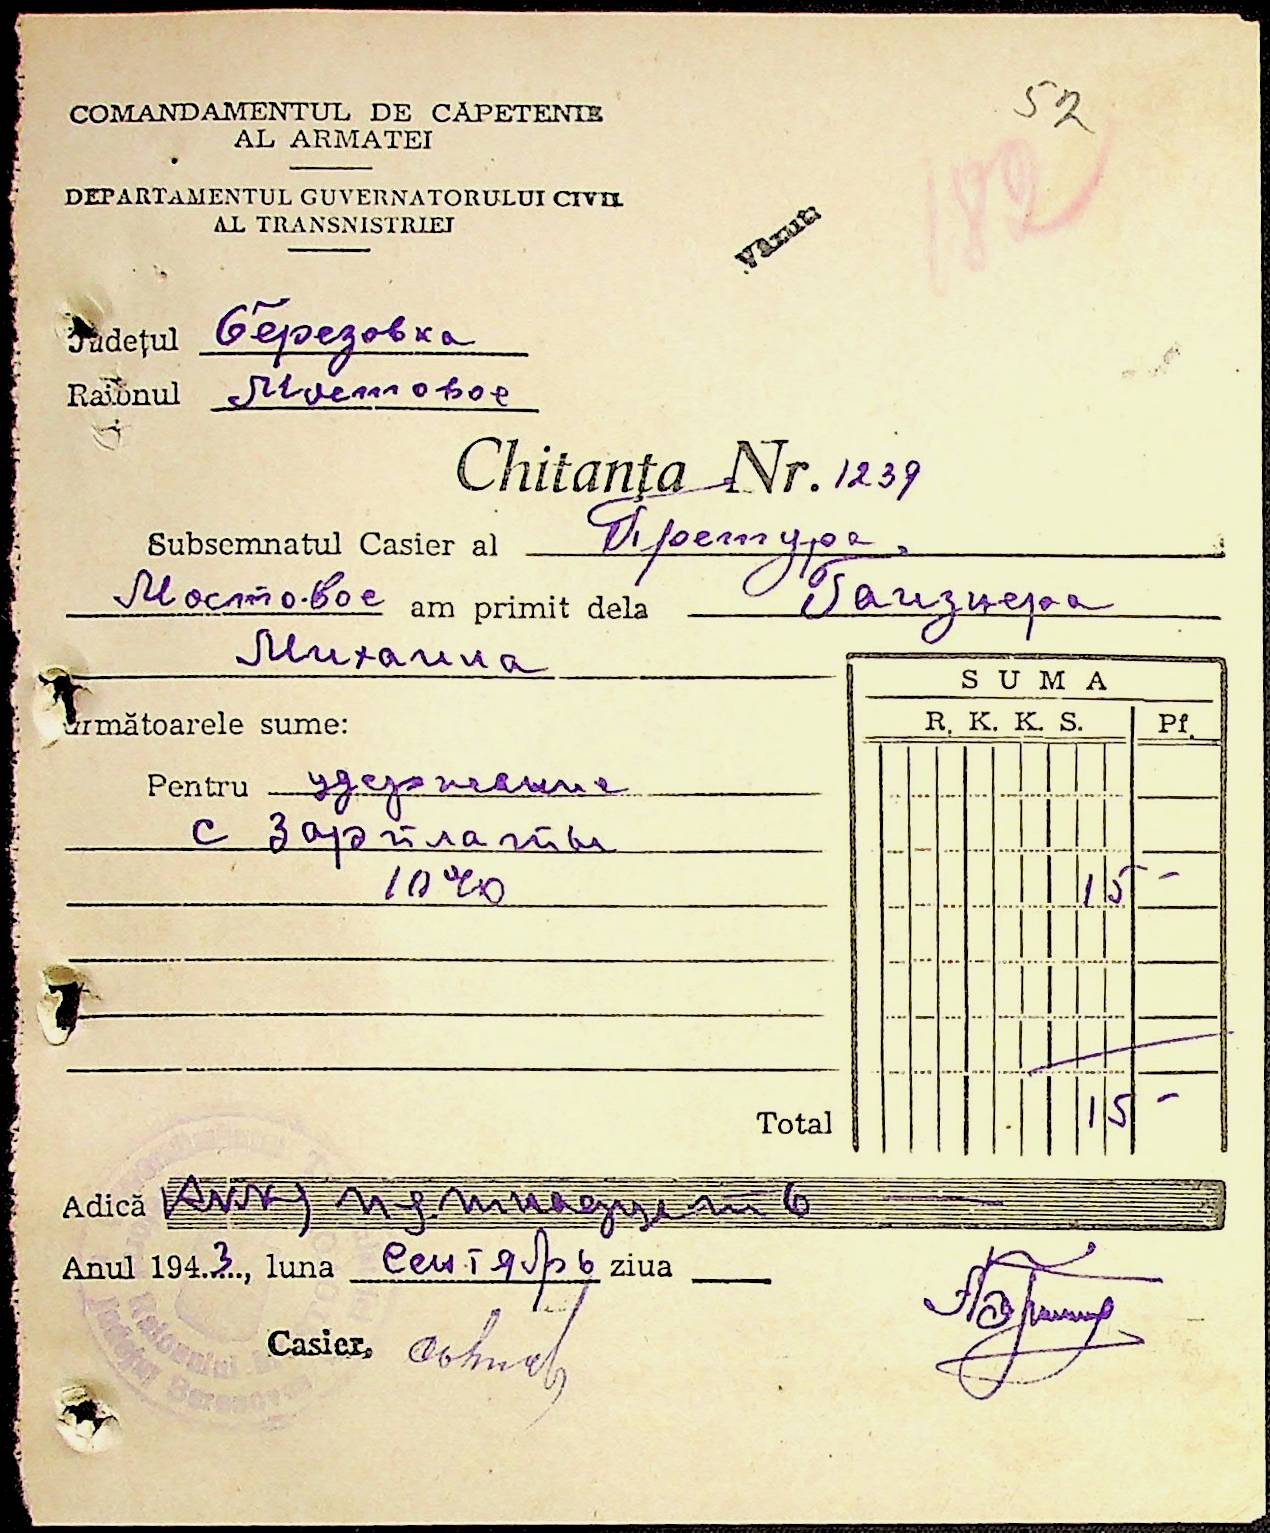 52
182
COMANDAMENTUL DE CAPETENIE
AL ARMATEI
DEPARTAMENTUL GUVERNATORULUI CIVIL
AL TRANSNISTRIEI
Văzut:
Județul Березовка
Raionul Мостовое
Chitanța Nr. 1239
Subsemnatul Casier al Претура
Мостовое am primit dela Гаизнера
Михаила
următoarele sume:
SUMA
R. K. K. S. Pf.
Pentru удержание
с зарплаты
10%
15 -
Total 15 -
Adică пятнадцеть
Anul 1943, luna Сентябрь ziua
Casier,